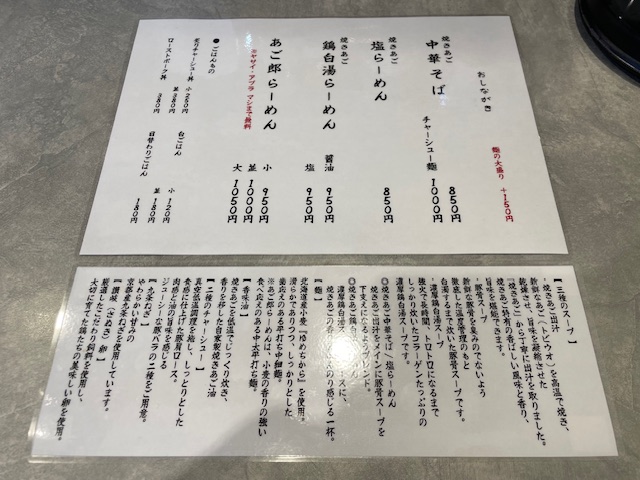 おしながき
麺の大盛り +150円
焼きあご
中華そば 850円
チャーシュー麺 1000円
焼きあご
塩らーめん 850円
焼きあご
鶏白湯らーめん 醤油 950円
塩 950円
あご郎らーめん 小 950円
※ヤサイ・アブラ マシまで無料 並 1000円
大 1050円
●ごはんもの
炙りチャーシュー丼 小 250円
並 380円
ローストポーク丼 380円
白ごはん 小 120円
並 180円
日替わりごはん 180円
【三種のスープ】
・焼きあご出汁
新鮮なあご(トビウオ)を高温で焼き、
乾燥させ、旨味を凝縮させた
『焼きあご』から丁寧に出汁を取りました。
焼きあご特有の香ばしい風味と香り、
旨味を堪能できます。
・豚骨スープ
新鮮な豚骨を臭みのでないよう
徹底した温度管理のもと
白濁するまで炊いた豚骨スープです。
・濃厚鶏白湯スープ
強火で長時間、トロトロになるまで
しっかり炊いたコラーゲンたっぷりの
濃厚鶏白湯スープです。
◎焼きあご中華そば/塩らーめん
焼きあご出汁をメインに豚骨スープを
下支えにしたダブルスープ。
◎焼きあご鶏白湯らーめん
濃厚鶏白湯スープをベースに、
焼きあごの香りをほんのり感じる一杯。
【麺】
北海道産小麦『ゆめちから』を使用。
滑らかでありつつ、しっかりとした
歯応えのある平打ち中細麺。
※あご郎らーめんは、小麦の香りの強い
食べ応えのある中太平打ち麺。
【香味油】
焼きあごを低温でじっくり炊き、
香りを移した自家製焼きあご油
【二種のチャーシュー】
真空低温調理を施し、しっとりとした
食感に仕上げた豚肩ロース。
肉感と油の旨味を感じる
ジューシーな豚バラの二種をご用意。
【九条ねぎ】
やわらかい甘みの
京都産九条ねぎを使用しています。
【讃岐(さぬき)卵】
厳選したこだわり飼料を使用し、
大切に育てた鶏たちの美味しい卵を使用。